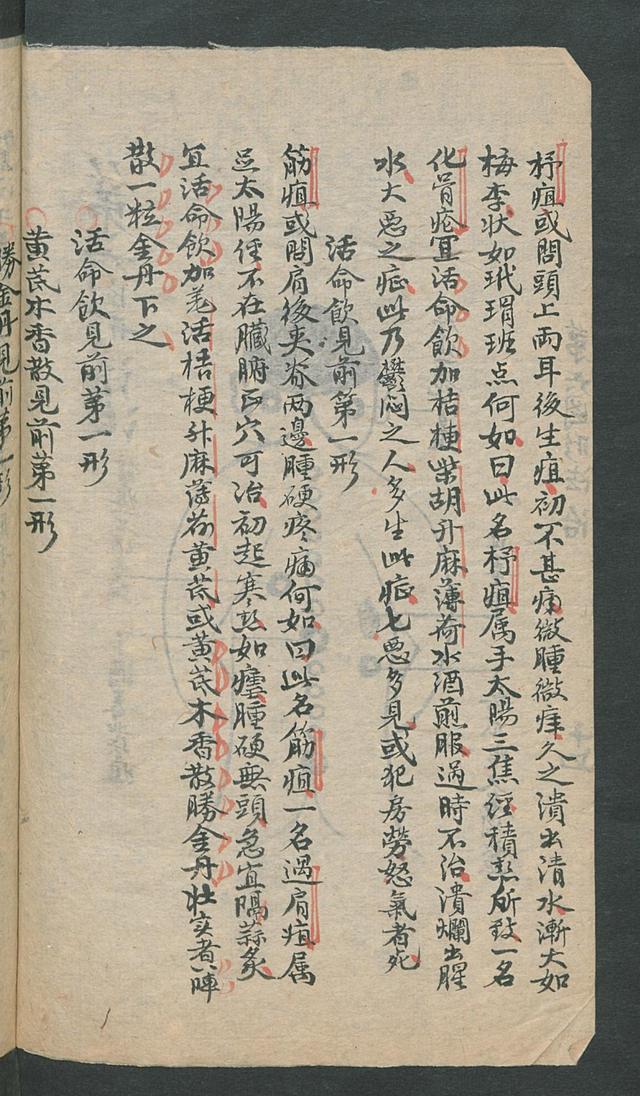 杼疽或問頭上兩耳後生疽初不甚痛微腫微痒久之潰出清水漸大如
梅李状如玳瑁班点何如曰此名杼疽属手太陽三焦經積热所致一名
化骨疽宜活命飲加桔梗柴胡升麻薄荷水酒煎服過時不治潰爛出腥
水大恶之症此乃鬱闷之人多生此症七恶多見或犯房勞怒氣者死
活命飲見前第一形
筋疽或問肩後夹脊两邊腫硬疼痛何如曰此名筋疽一名過肩疽属
足太陽径不在臟腑正穴可治初起寒热如瘧腫硬無頭急宜隔蒜炙
宜活命飲加羌活桔梗升麻薄荷黄芪或黄芪木香散勝金丹壮实者一陣
散一粒金丹下之
活命飲見前苐一形
黄芪木香散見前苐一形
勝金丹見前第一形